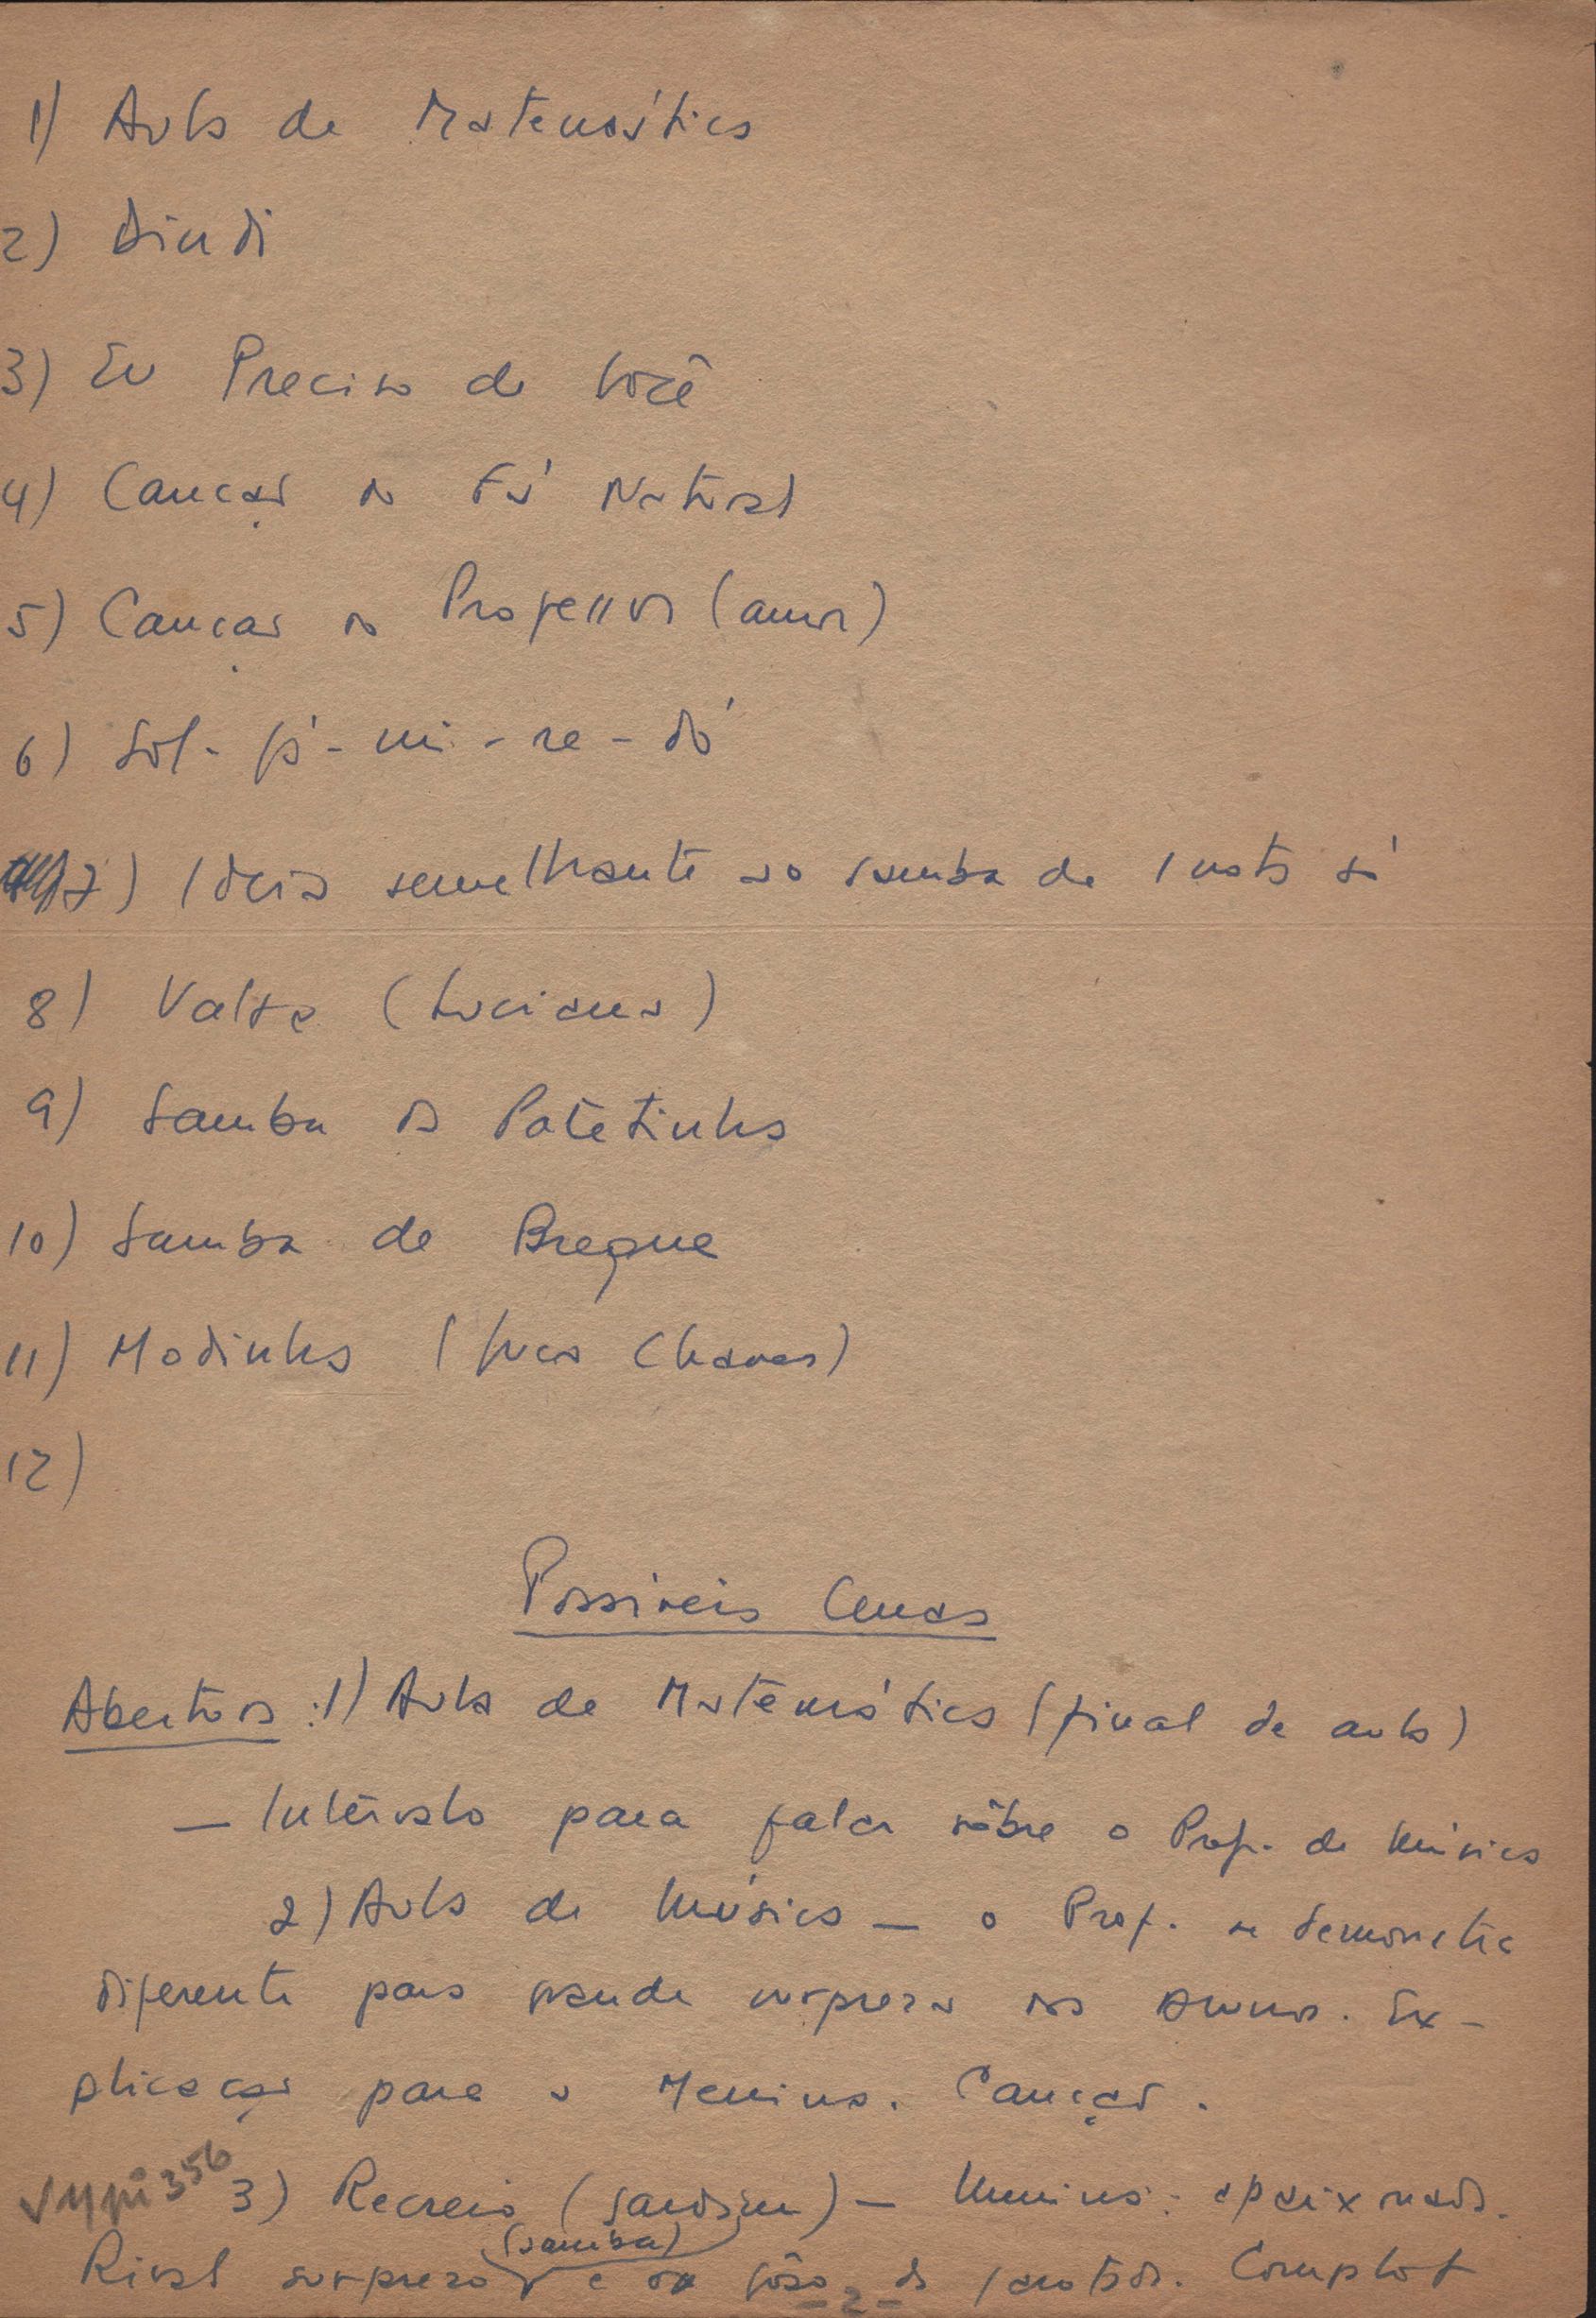 1) Aula de Matemática
2) Dindi
3) Eu Preciso de Você
4) Canção do Fá Natural
5) Canção do Professor (amor)
6) Sol - fá - mi - re - dó
7) Ideia semelhante ao samba de 1 nota só
8) Valsa (Luciana)
9) Samba da Patetinha
10) Samba de Breque
11) Modinha (Juca Chaves)
12)
Possíveis Cenas
Abertura : 1) Aula de Matemática (final de aula)
— Intervalo para falar sôbre o Prof. de Música
2) Aula de Música — o Prof. se demonstra
diferente para grande surpresa dos alunos. Ex-
plicação para a Menina. Canção.
3) Recreio (jardim) — Menina: apaixonada.
(samba)
Rival surpresa e de Complot
- 2 -